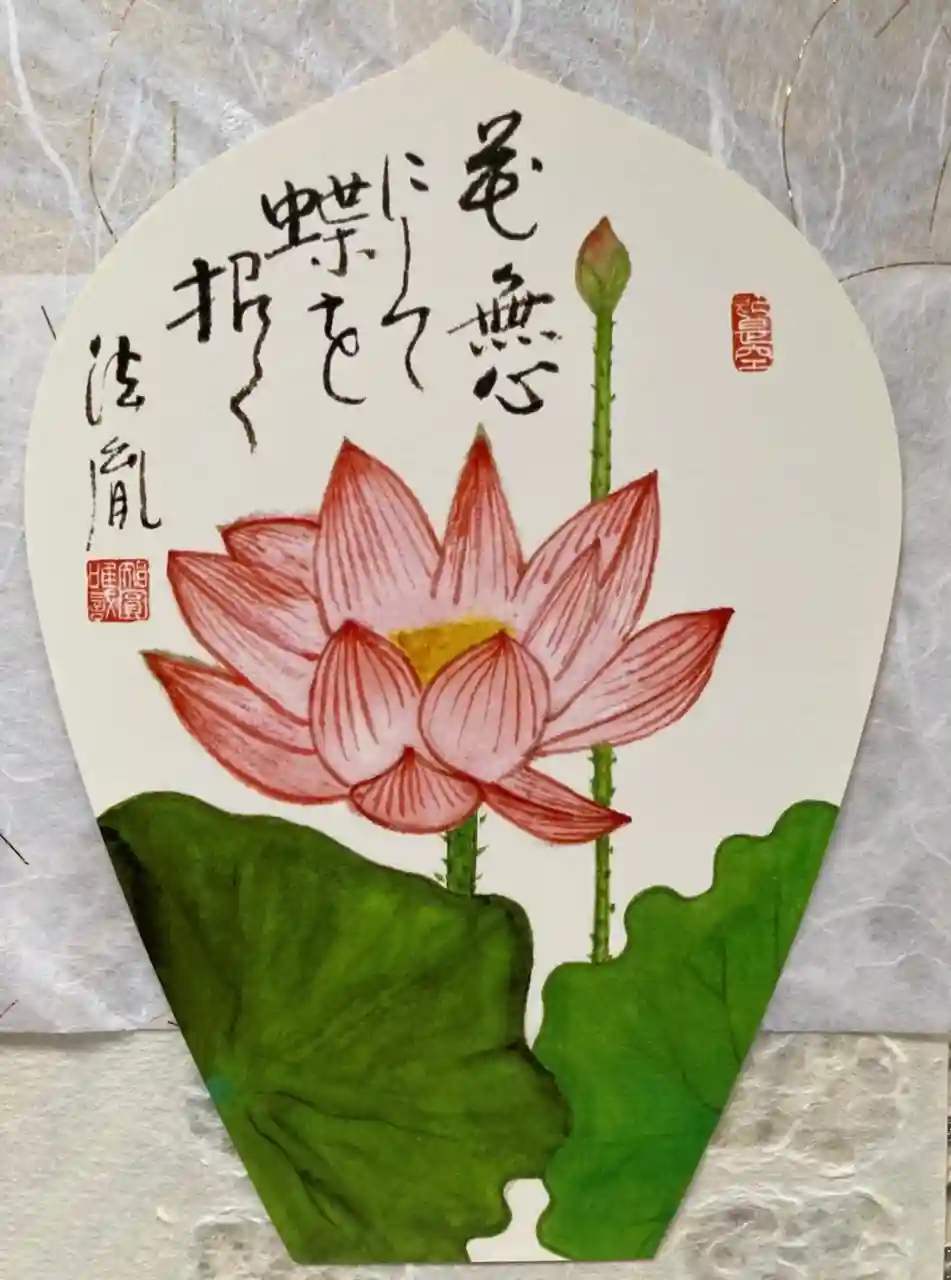 花無心
にして
蝶を
招く
法胤
如是空